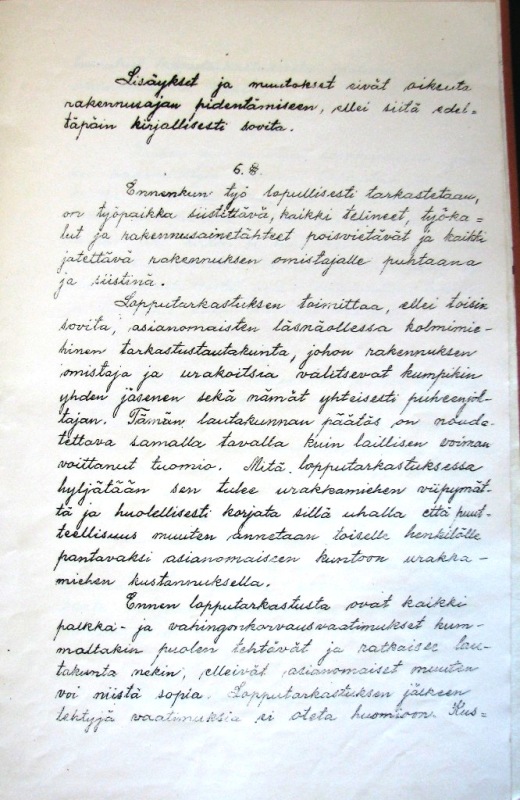 Lisäykset ja muutokset eivät oikeuta
rakennusajan pidentämiseen, ellei siitä edel=
täpäin kirjallisesti sovita.
6. §.
Ennenkun työ lopullisesti tarkastetaan,
on työpaikka siistittävä, kaikki telineet, työka=
lut ja rakennusainetähteet poisvietävät ja kaikki
jätettävä rakennuksen omistajalle puhtaana
ja siistinä.
Lopputarkastuksen toimittaa, ellei toisin
sovita, asianomaisten läsnäollessa kolmimie-
hinen tarkastustautakunta, johon rakennuksen
omistaja ja urakoitsia valitsevat kumpikin
yhden jäsenen sekä nämät yhteisesti puheenjoh-
tajan. Tämän lautakunnan päätös on nouda-
tettava samalla tavalla kuin laillisen voiman
voittanut tuomio. Mitä lopputarkastuksessa
hyljätään sen tulee urakkamiehen viipymät-
tä ja huolellisesti korjata sillä uhalla että puut-
teellisuus muuten annetaan toiselle henkilölle
pantavaksi asianomaiseen kuntoon urakka-
miehen kustannuksella.
Ennen lopputarkastusta ovat kaikki
palkka- ja vahingonkorvausvaatimukset kum-
maltakin puolen tehtävät ja ratkaisee lau-
takunta nekin, elleivät asianomaiset muuten
voi niistä sopia. Lopputarkastuksen jälkeen
tehtyjä vaatimuksia ei oteta huomioon. Kus=